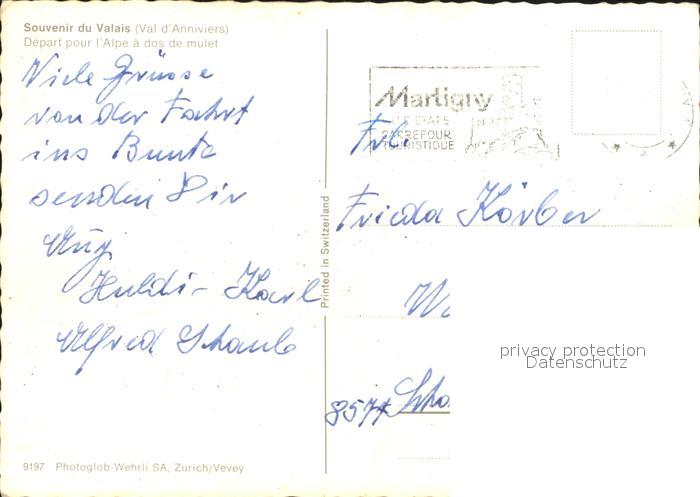 Souvenir du Valais (Val d'Anniviers)
Départ pour l'Alpe à dos de mulet
Viele Grüsse
von der Fahrt
ins Bunte
senden Dir
Huldi - Karl
Alfred Schaub
9197 Photoglob-Wehrli SA, Zurich/Vevey
Printed in Switzerland
Martigny
CARREFOUR
TOURISTIQUE
Frl.
Frieda Körber
8574
privacy protection
Datenschutz